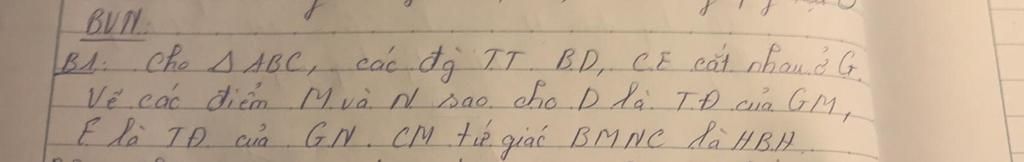 BVN.
B1: Cho Δ ABC, các đg TT BD, CE cắt nhau ở G.
Vẽ các điểm M và N sao cho D là TĐ của GM,
E là TĐ của GN. CM tứ giác BMNC là HBH.